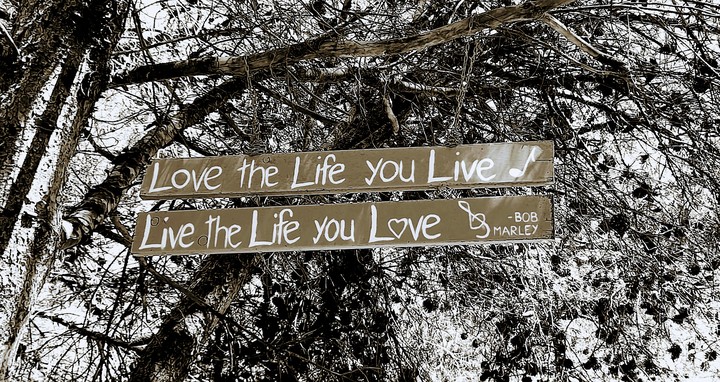 Love the Life you Live
Live the Life you Love
-BOB
MARLEY